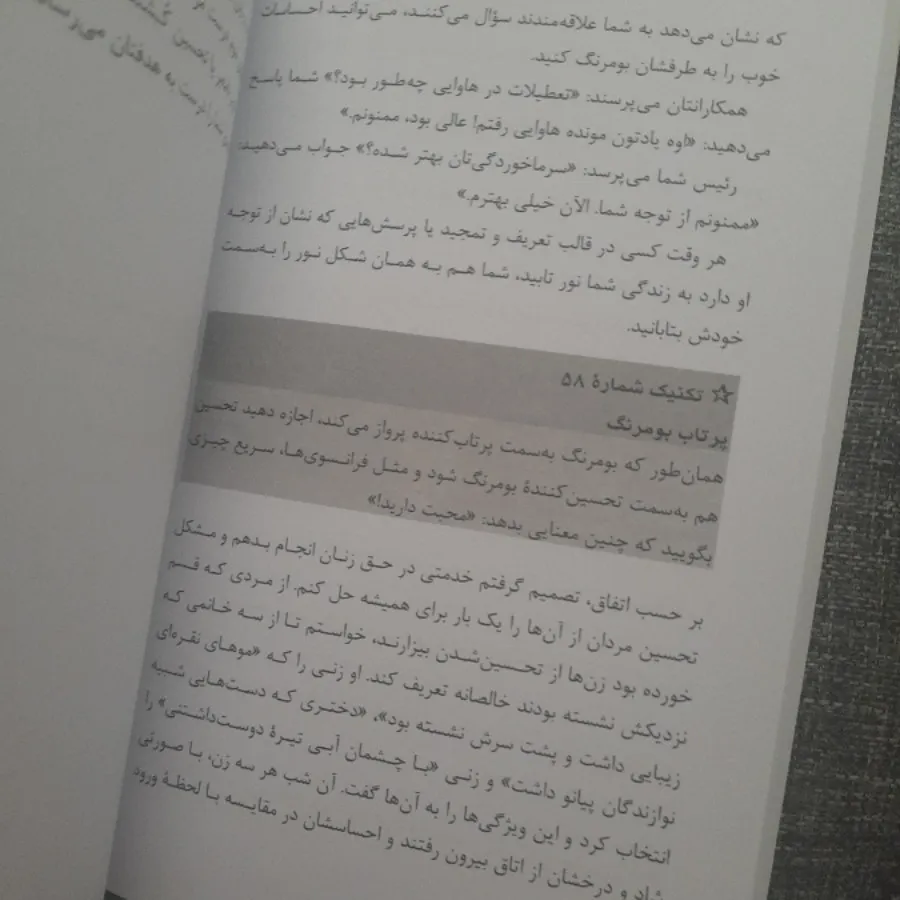 که نشان می‌دهد به شما علاقه‌مندند سؤال می‌کنند، می‌توانید احساسات
خوب را به طرفشان بومرنگ کنید.
همکارانتان می‌پرسند: «تعطیلات در هاوایی چه‌طور بود؟» شما پاسخ
می‌دهید: «اوه یادتون مونده هاوایی رفتم! عالی بود، ممنونم.»
رئیس شما می‌پرسد: «سرماخوردگی‌تان بهتر شده؟» جواب می‌دهید:
«ممنونم از توجه شما. الآن خیلی بهترم.»
هر وقت کسی در قالب تعریف و تمجید یا پرسش‌هایی که نشان از توجه
او دارد به زندگی شما نور تابید، شما هم به همان شکل نور را به‌سمت
خودش بتابانید.
تکنیک شمارهٔ ۵۸
پرتاب بومرنگ
همان‌طور که بومرنگ به‌سمت پرتاب‌کننده پرواز می‌کند، اجازه دهید تحسین
هم به‌سمت تحسین‌کنندهٔ بومرنگ شود و مثل فرانسوی‌ها، سریع چیزی
بگویید که چنین معنایی بدهد: «محبت دارید!»
بر حسب اتفاق، تصمیم گرفتم خدمتی در حق زنان انجام بدهم و مشکل
تحسین مردان از آن‌ها را یک بار برای همیشه حل کنم. از مردی که قسم
خورده بود زن‌ها از تحسین‌شدن بیزارند، خواستم تا از سه خانمی که
نزدیکش نشسته بودند خالصانه تعریف کند. او زنی را که «موهای نقره‌ای
زیبایی داشت و پشت سرش نشسته بود»، «دختری که دست‌هایی شبیه
نوازندگان پیانو داشت» و زنی «با چشمان آبی تیرهٔ دوست‌داشتنی» را
انتخاب کرد و این ویژگی‌ها را به آن‌ها گفت. آن شب هر سه زن، با صورتی
شاد و درخشان از اتاق بیرون رفتند و احساسشان در مقایسه با لحظهٔ ورود